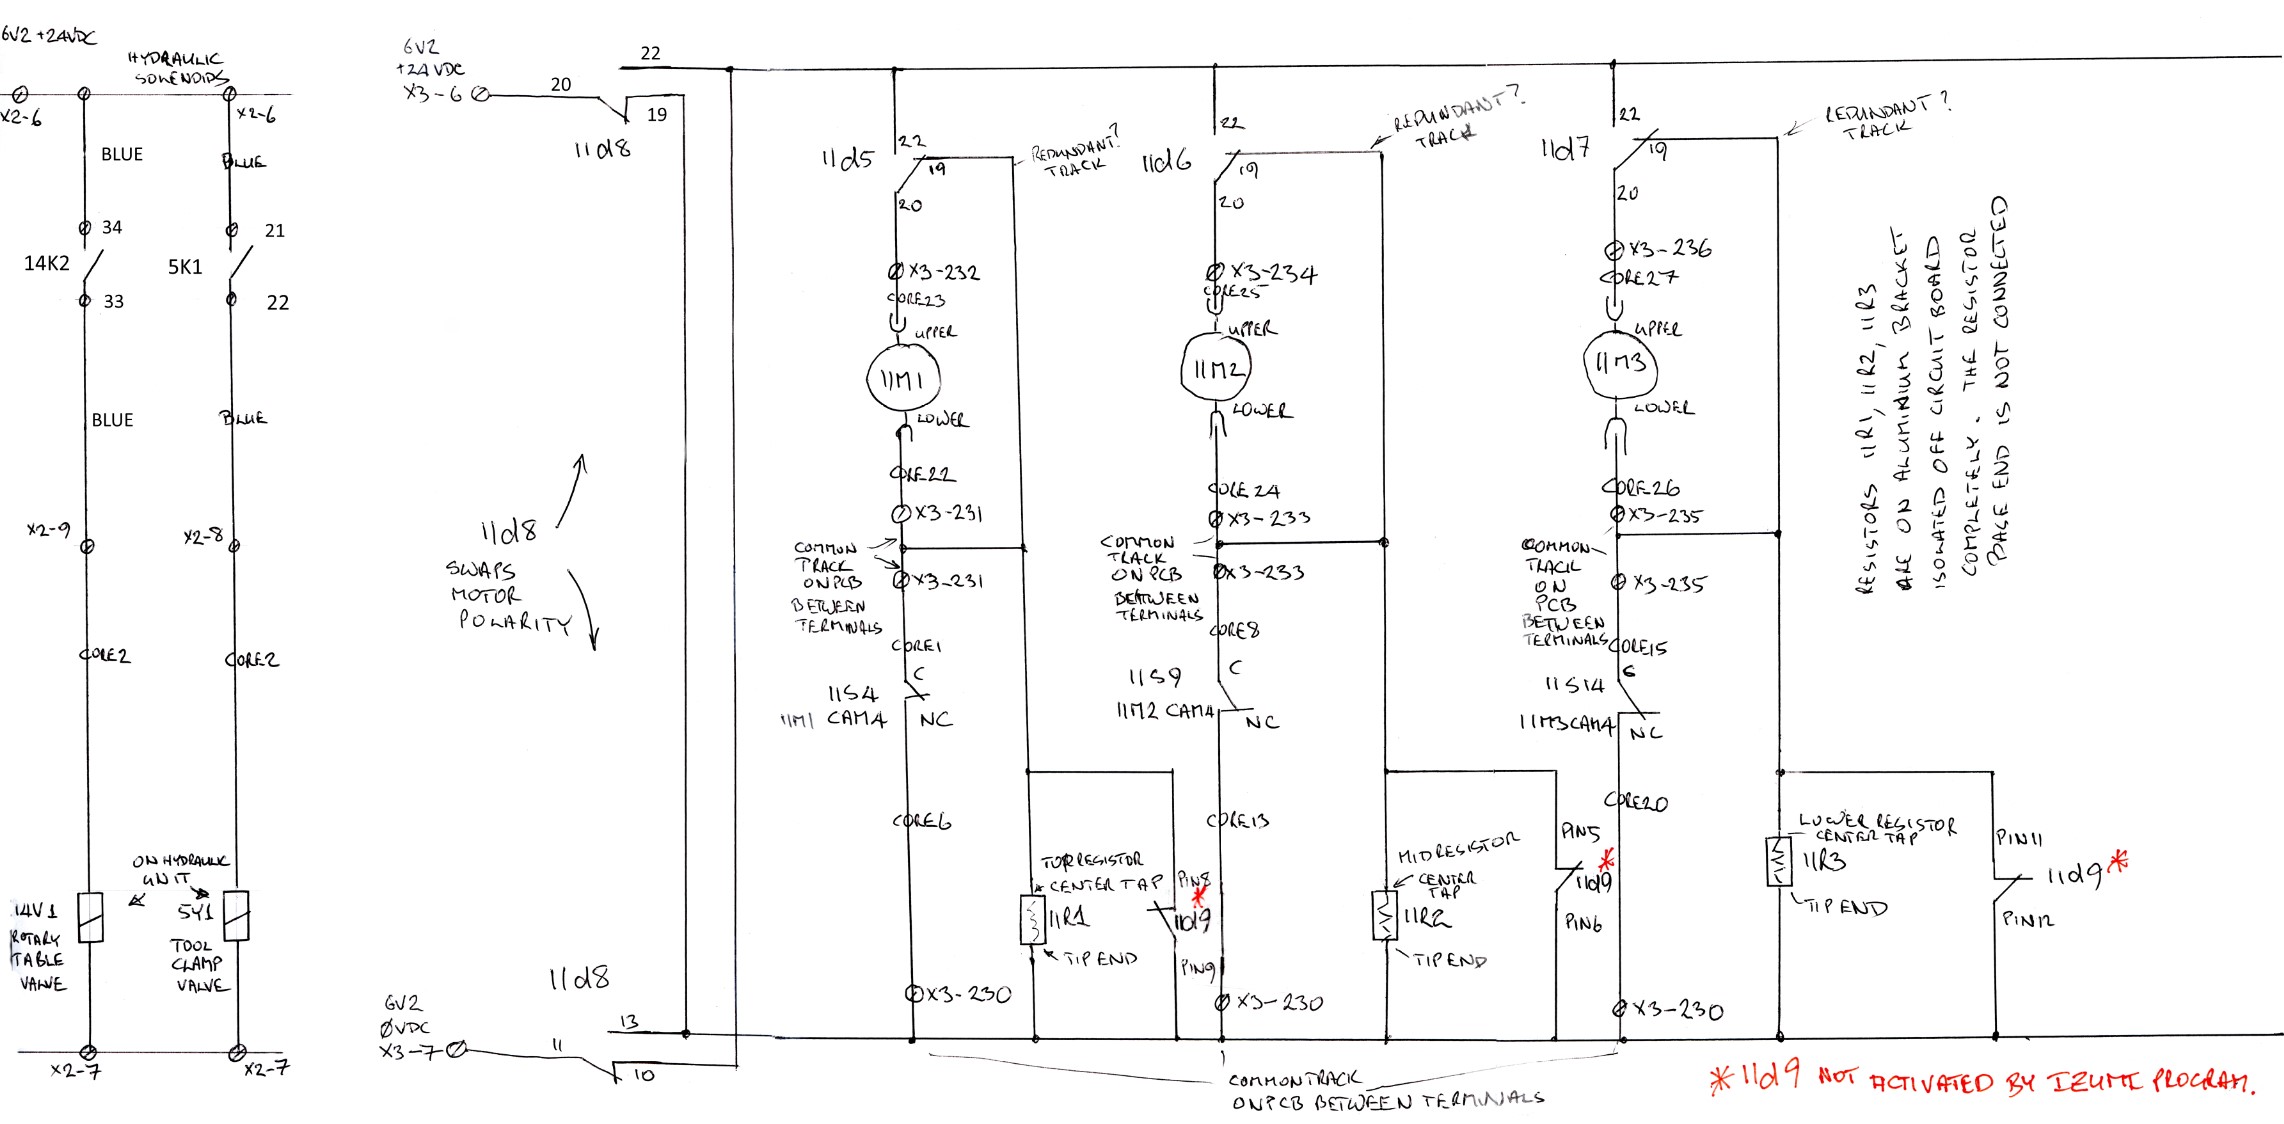 6V2 +24VDC
HYDRAULIC
SOLENOIDS
X2-6
X2-6
BLUE
BLUE
34
21
14K2
5K1
33
22
BLUE
BLUE
X2-9
X2-8
CORE2
CORE2
ON HYDRAULIC
UNIT
14V1
ROTARY
TABLE
VALVE
5Y1
TOOL
CLAMP
VALVE
X2-7
X2-7
6V2
+24VDC
X3-6
20
22
19
11d8
11d8
SWAPS
MOTOR
POLARITY
11d8
6V2
0VDC
X3-7
11
13
10
22
11d5
19
20
REDUNDANT?
TRACK
X3-232
CORE23
UPPER
11M1
LOWER
CORE22
X3-231
COMMON
TRACK
ON PCB
BETWEEN
TERMINALS
X3-231
CORE1
C
11S4
11M1 CAM4
NC
CORE6
X3-230
TOP RESISTOR
CENTER TAP
11R1
TIP END
PIN8
*
11d9
PIN9
22
11d6
19
20
REDUNDANT?
TRACK
X3-234
CORE25
UPPER
11M2
LOWER
CORE24
X3-233
COMMON
TRACK
ON PCB
BETWEEN
TERMINALS
X3-233
CORE8
C
11S9
11M2 CAM4
NC
CORE13
X3-230
MID RESISTOR
CENTER
TAP
11R2
TIP END
PIN5
*
11d9
PIN6
22
11d7
19
20
REDUNDANT?
TRACK
X3-236
CORE27
UPPER
11M3
LOWER
CORE26
X3-235
COMMON
TRACK
ON
PCB
BETWEEN
TERMINALS
X3-235
CORE15
C
11S14
11M3 CAM4
NC
CORE20
X3-230
LOWER RESISTOR
CENTER TAP
11R3
TIP END
PIN11
11d9 *
PIN12
RESISTORS 11R1, 11R2, 11R3
ARE ON ALUMINIUM BRACKET
ISOLATED OFF CIRCUIT BOARD
COMPLETELY. THE RESISTOR
BASE END IS NOT CONNECTED
COMMON TRACK
ON PCB BETWEEN TERMINALS
* 11d9 NOT ACTIVATED BY IZUMI PROGRAM.